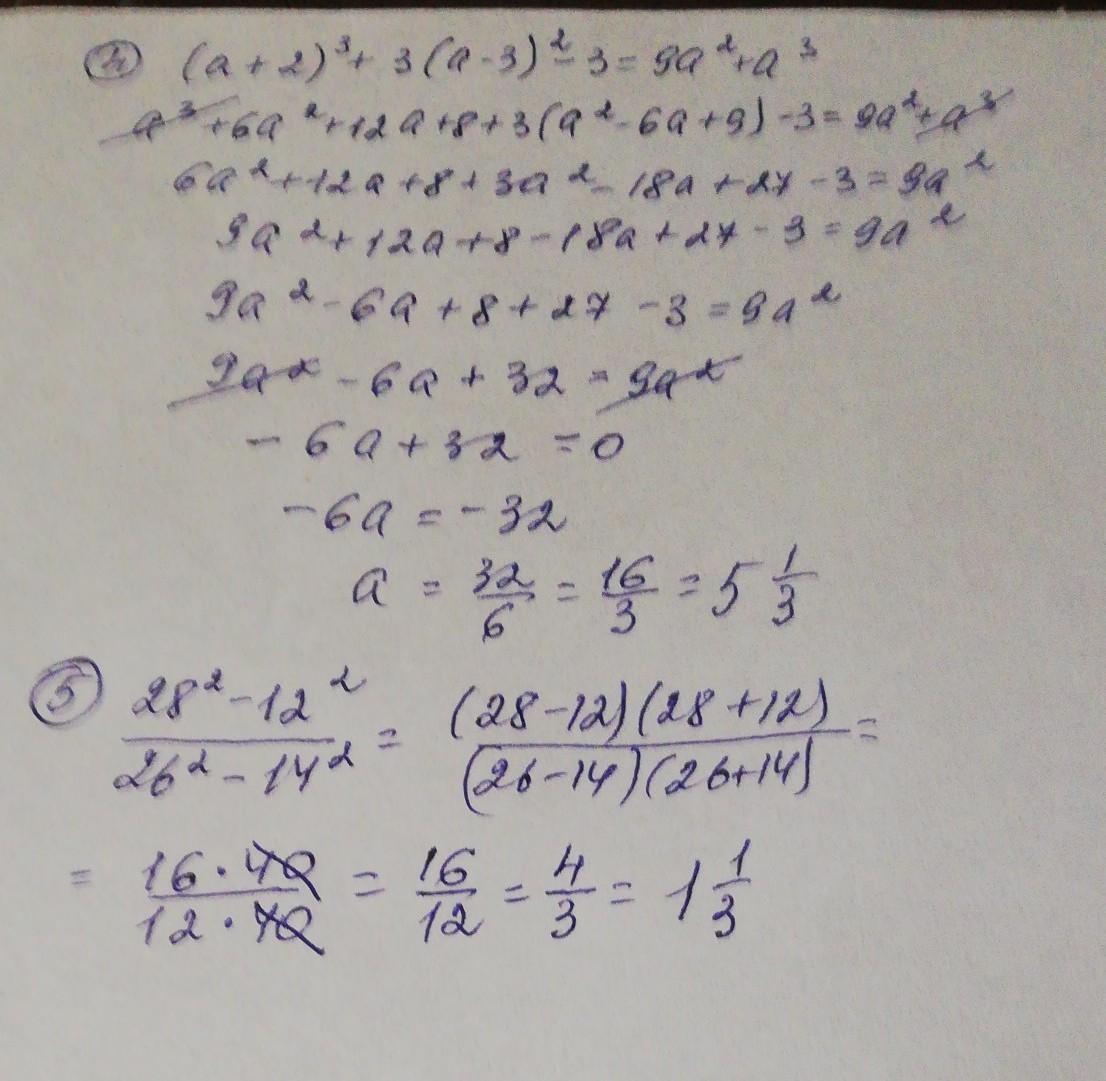 ④ (a+2)³+3(a-3)²-3=9a²+a³
a³+6a²+12a+8+3(a²-6a+9)-3=9a²+a³
6a²+12a+8+3a²-18a+27-3=9a²
9a²+12a+8-18a+27-3=9a²
9a²-6a+8+27-3=9a²
9a²-6a+32=9a²
-6a+32=0
-6a=-32
a = 32/6 = 16/3 = 5 1/3
⑤ (28²-12²)/(26²-14²) = ((28-12)(28+12))/((26-14)(26+14)) =
= (16·40)/(12·40) = 16/12 = 4/3 = 1 1/3